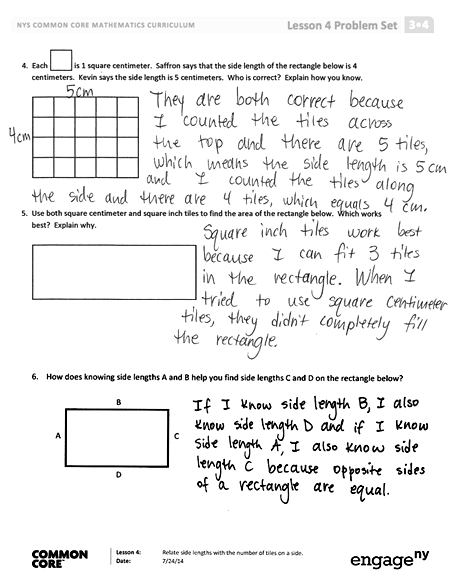 NYS COMMON CORE MATHEMATICS CURRICULUM
Lesson 4 Problem Set 3•4
4. Each is 1 square centimeter. Saffron says that the side length of the rectangle below is 4
centimeters. Kevin says the side length is 5 centimeters. Who is correct? Explain how you know.
5cm
4cm
They are both correct because
I counted the tiles across
the top and there are 5 tiles,
which means the side length is 5 cm
and I counted the tiles along
the side and there are 4 tiles, which equals 4 cm.
5. Use both square centimeter and square inch tiles to find the area of the rectangle below. Which works
best? Explain why.
Square inch tiles work best
because I can fit 3 tiles
in the rectangle. When I
tried to use square centimeter
tiles, they didn't completely fill
the rectangle.
6. How does knowing side lengths A and B help you find side lengths C and D on the rectangle below?
B
A
C
D
If I know side length B, I also
know side length D and if I know
side length A, I also know side
length C because opposite sides
of a rectangle are equal.
COMMON
CORE™
Lesson 4: Relate side lengths with the number of tiles on a side.
Date: 7/24/14
engage ny